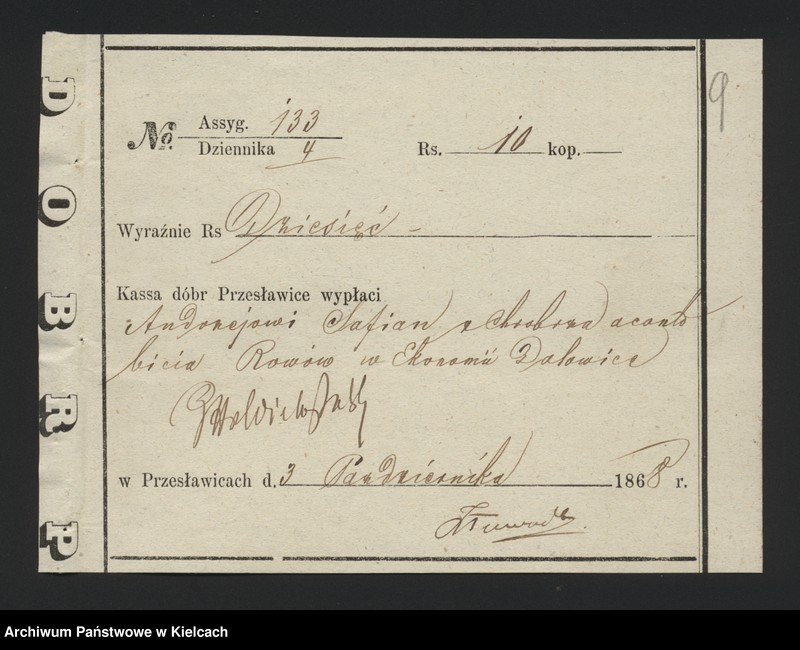 DOBR P
9
No. Assyg. 133
Dziennika 4
Rs. 10 kop.
Wyraźnie Rs Dziesięć
Kassa dóbr Przesławice wypłaci
Andrzejowi Safian z Chrobrza aconto
bicia Rowów w Ekonomii Dalowice
w Przesławicach d. 3 Października 1868 r.
Archiwum Państwowe w Kielcach